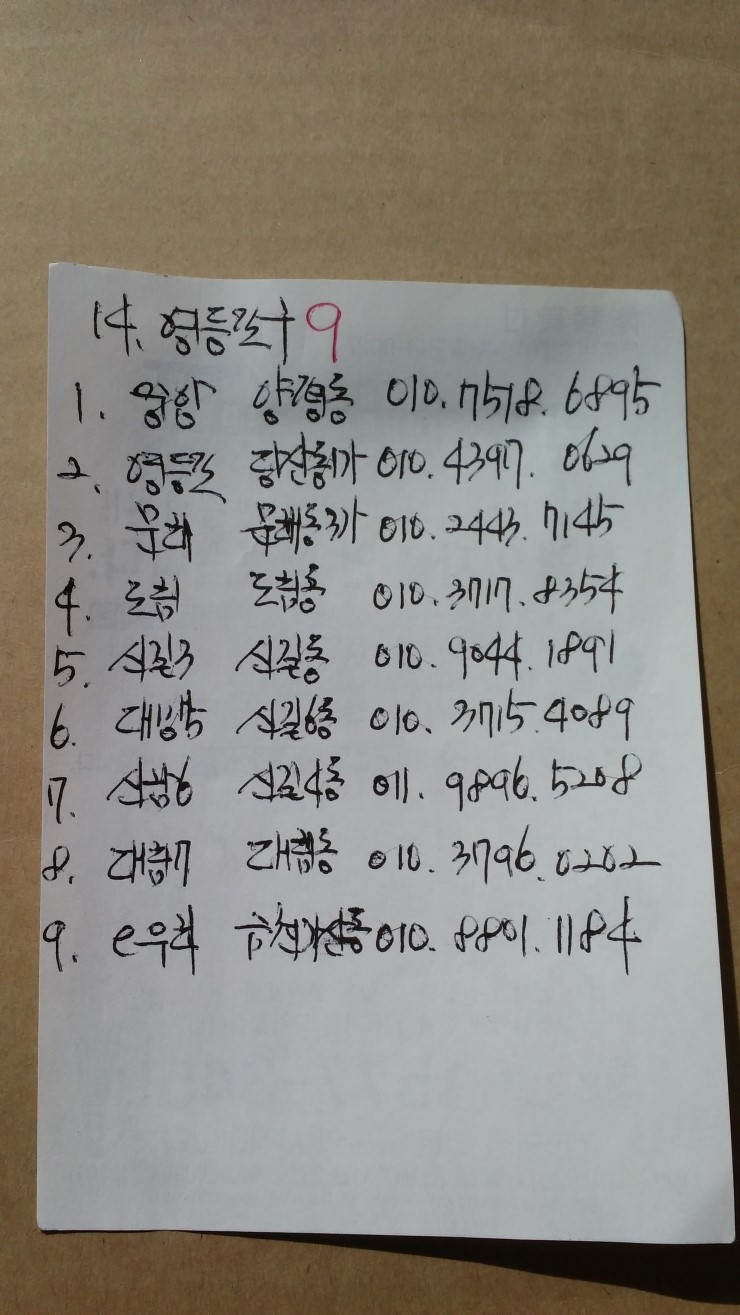 14. 영등포구 9
1. 중앙 양평동 010.7578.6895
2. 영등포 당산동1가 010.4397.0629
3. 문래 문래동3가 010.2443.7145
4. 도림 도림동 010.3717.8354
5. 신길3 신길동 010.9044.1891
6. 대방75 신길6동 010.3715.4089
7. 6 신길4동 011.9896.5208
8. 대림7 대림동 010.3796.0202
9. e우리 010.8801.1184